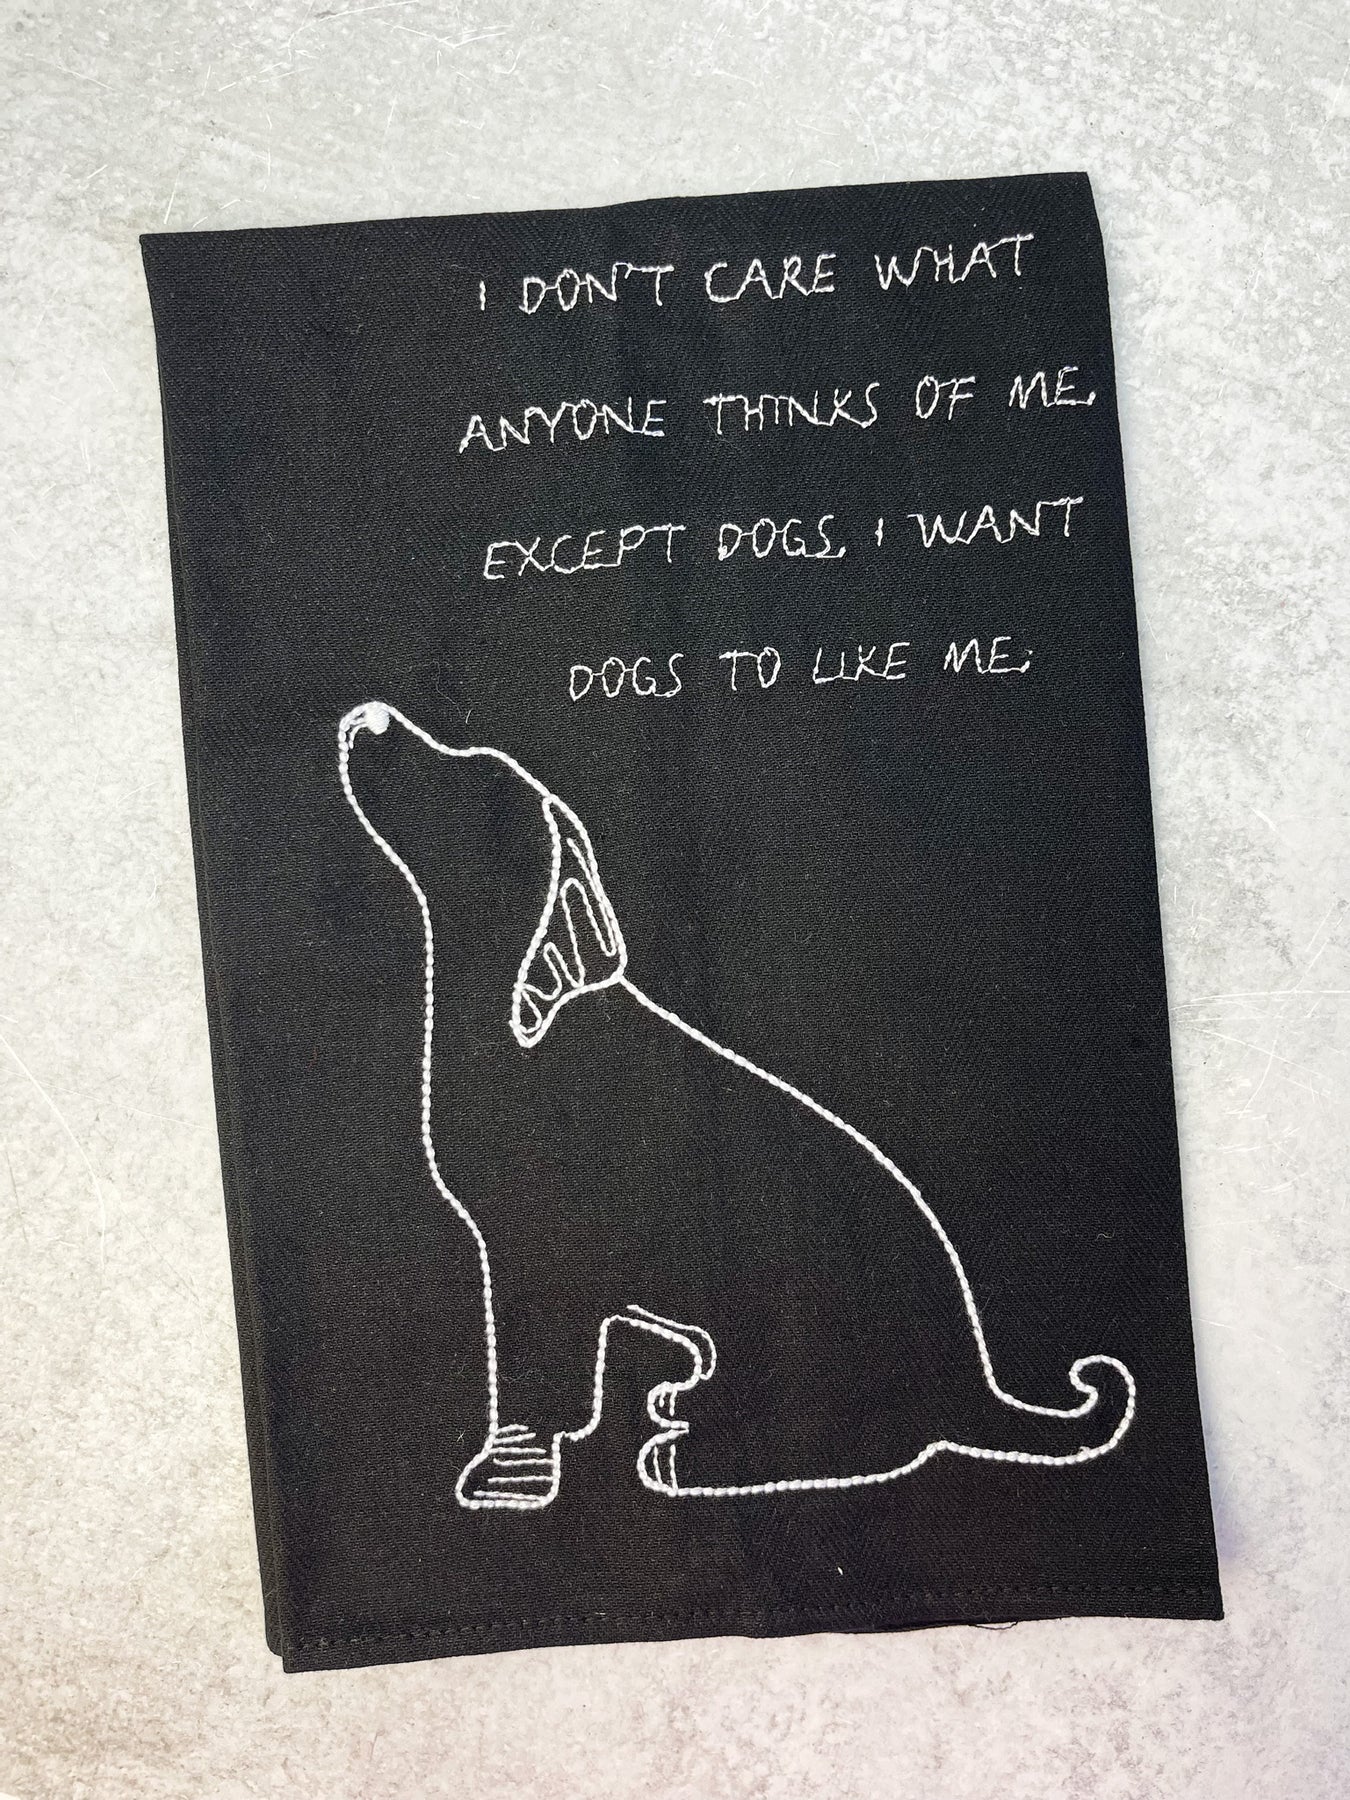 I DON'T CARE WHAT
ANYONE THINKS OF ME.
EXCEPT DOGS. I WANT
DOGS TO LIKE ME.